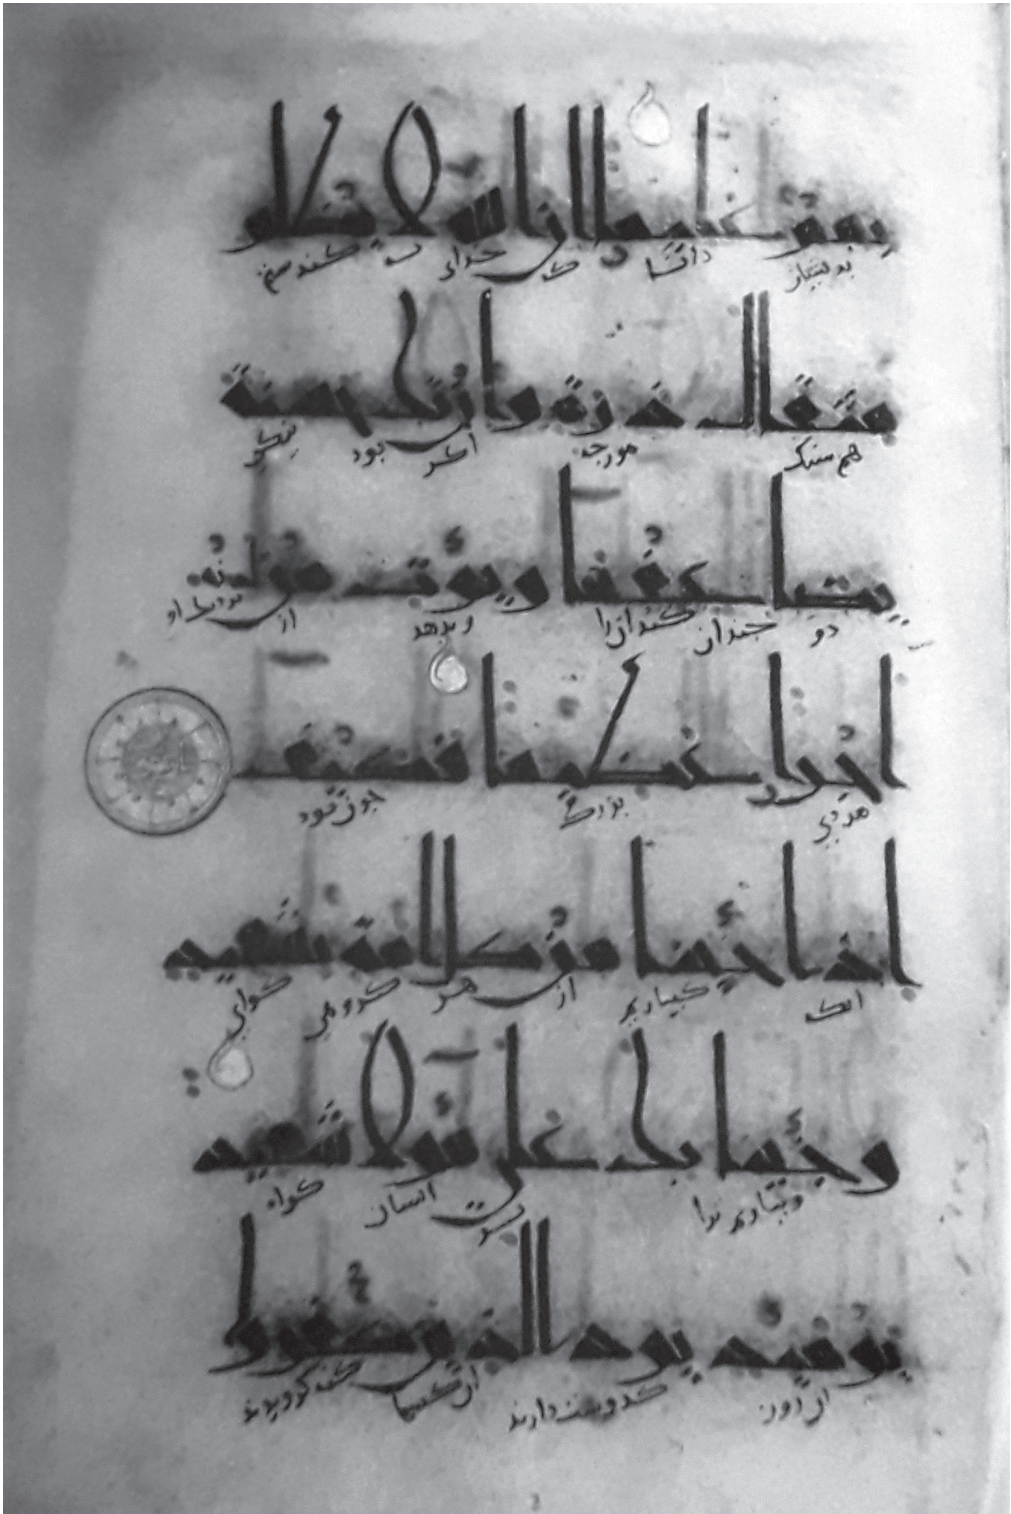 بهم عليما ان الله لا يظلم
بديشان دانا كه خداى كند ستم
مثقال ذرة وان تك حسنة
هم سنك مورجه اكر بود نيكوى
يضاعفها ويؤت من لدنه
دو جندان كندان را وبدهد از نزديك او
اجرا عظيما فكيف
مزدى بزرك جون بود
اذا جئنا من كل امة بشهيد
انك بياريم از هر كروهى كواهى
وجئنا بك على هؤلاء شهيدا
وبياريم ترا بر كواه
يومئذ يود الذين كفروا
ان روز كه دوست دارند ان كسها كه نكرويدند